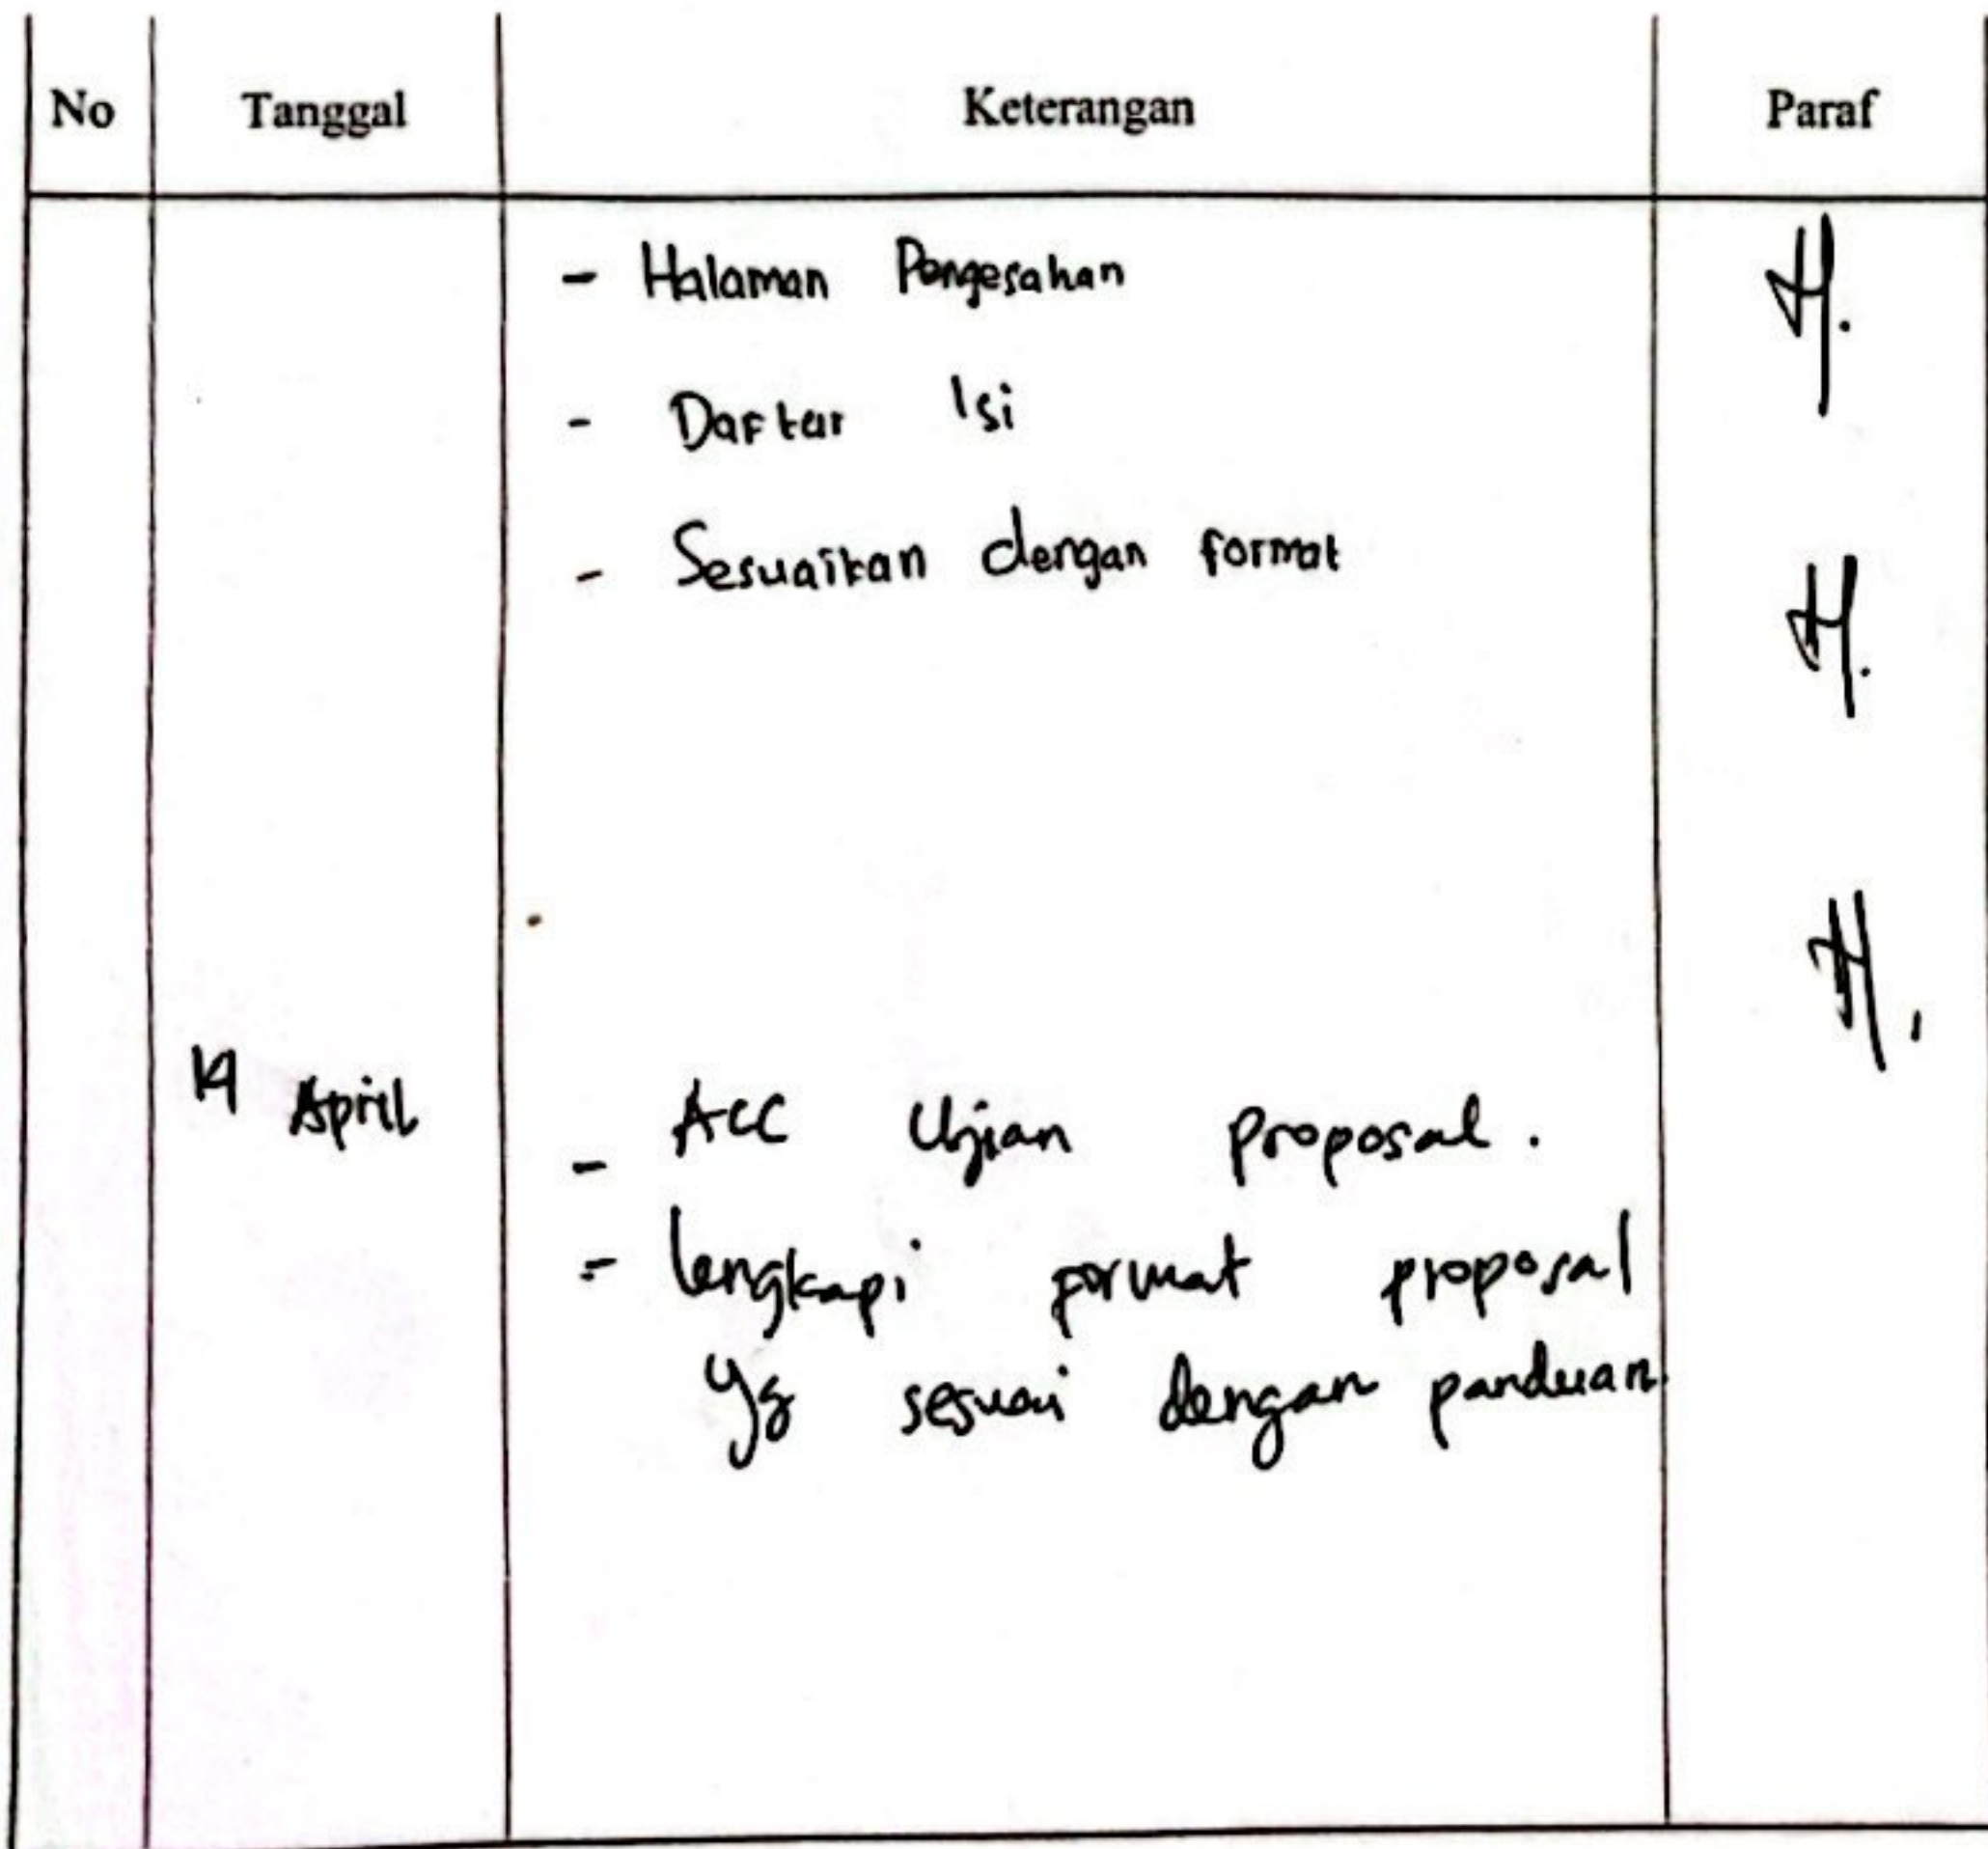 No Tanggal Keterangan Paraf
- Halaman Pengesahan
- Daftar Isi
- Sesuaikan dengan format
April
- ACC Ujian proposal.
- lengkapi format proposal
yg sesuai dengan panduan